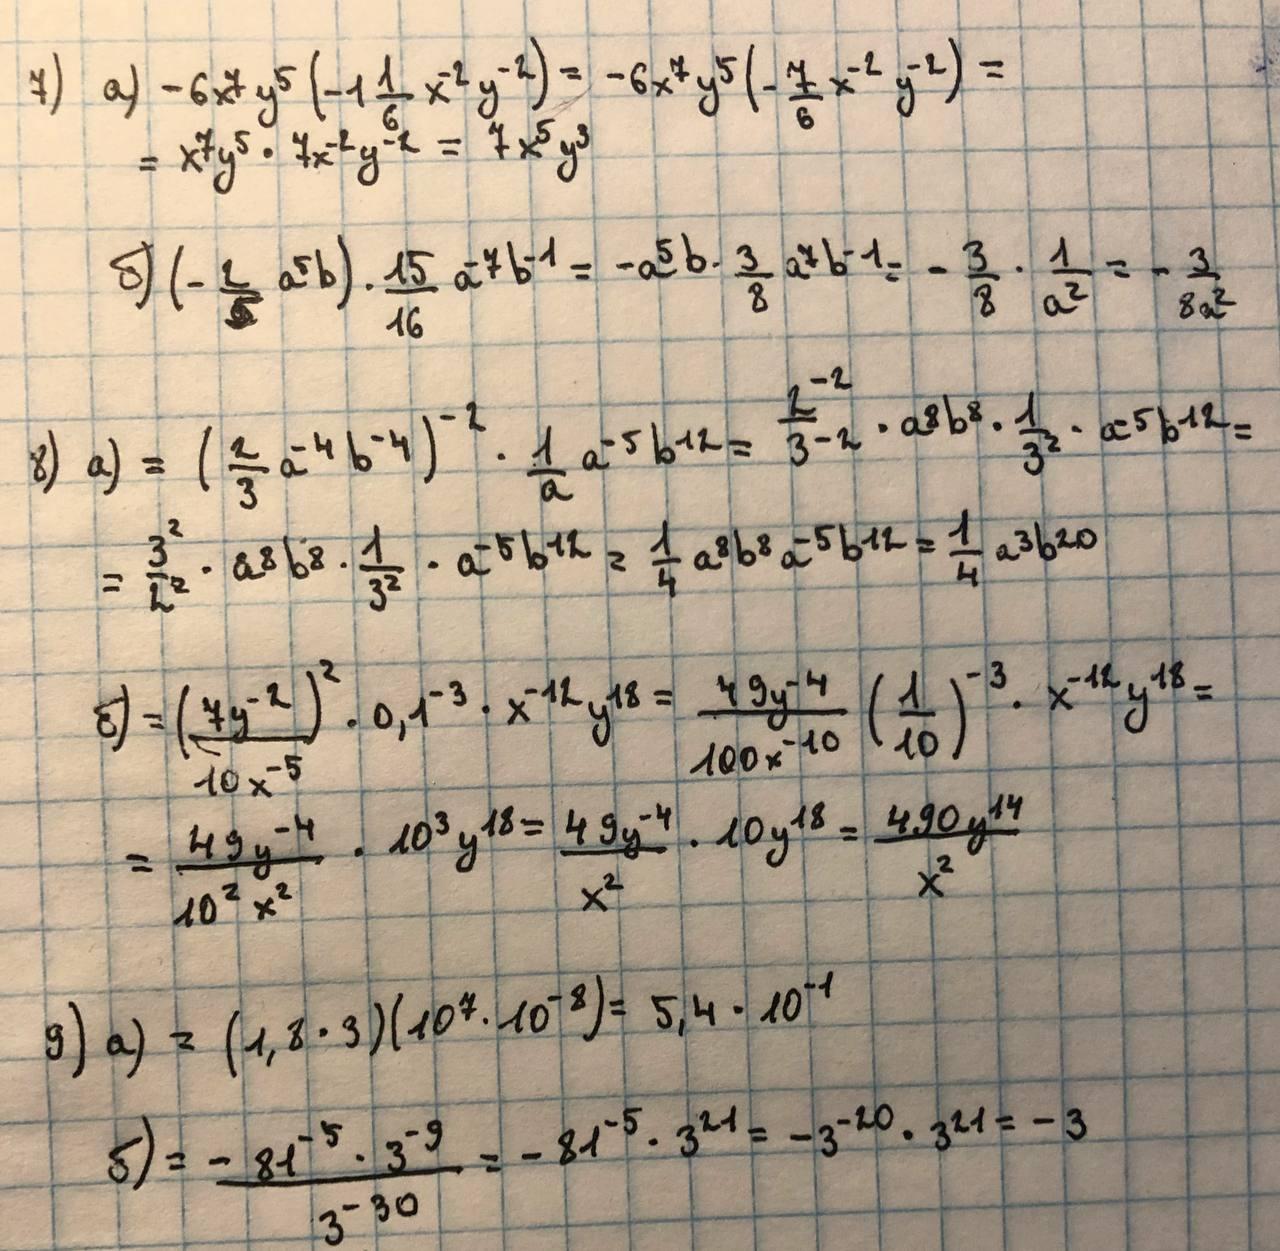 7) а) -6x⁷y⁵(-1 1/6 x⁻²y⁻²) = -6x⁷y⁵(-7/6 x⁻²y⁻²) =
= x⁷y⁵ · 7x⁻²y⁻² = 7x⁵y³
б) (-2/5 a⁵b) · 15/16 a⁻⁷b⁻¹ = -a⁵b · 3/8 a⁷b⁻¹ = -3/8 · 1/a² = -3/8a²
8) а) = (2/3 a⁻⁴b⁻⁴)⁻² · 1/a a⁻⁵b¹² = 2⁻²/3⁻² · a⁸b⁸ · 1/3² · a⁻⁵b¹² =
= 3²/2² · a⁸b⁸ · 1/3² · a⁻⁵b¹² = 1/4 a⁸b⁸a⁻⁵b¹² = 1/4 a³b²⁰
б) = (7y⁻²/10x⁻⁵)² · 0,1⁻³ · x⁻¹²y¹⁸ = 49y⁻⁴/100x⁻¹⁰ (1/10)⁻³ · x⁻¹²y¹⁸ =
= 49y⁻⁴/10²x² · 10³y¹⁸ = 49y⁻⁴/x² · 10y¹⁸ = 490y¹⁴/x²
9) а) = (1,8 · 3)(10⁷ · 10⁻⁸) = 5,4 · 10⁻¹
б) = -81⁻⁵ · 3⁻⁹/3⁻³⁰ = -81⁻⁵ · 3²¹ = -3⁻²⁰ · 3²¹ = -3